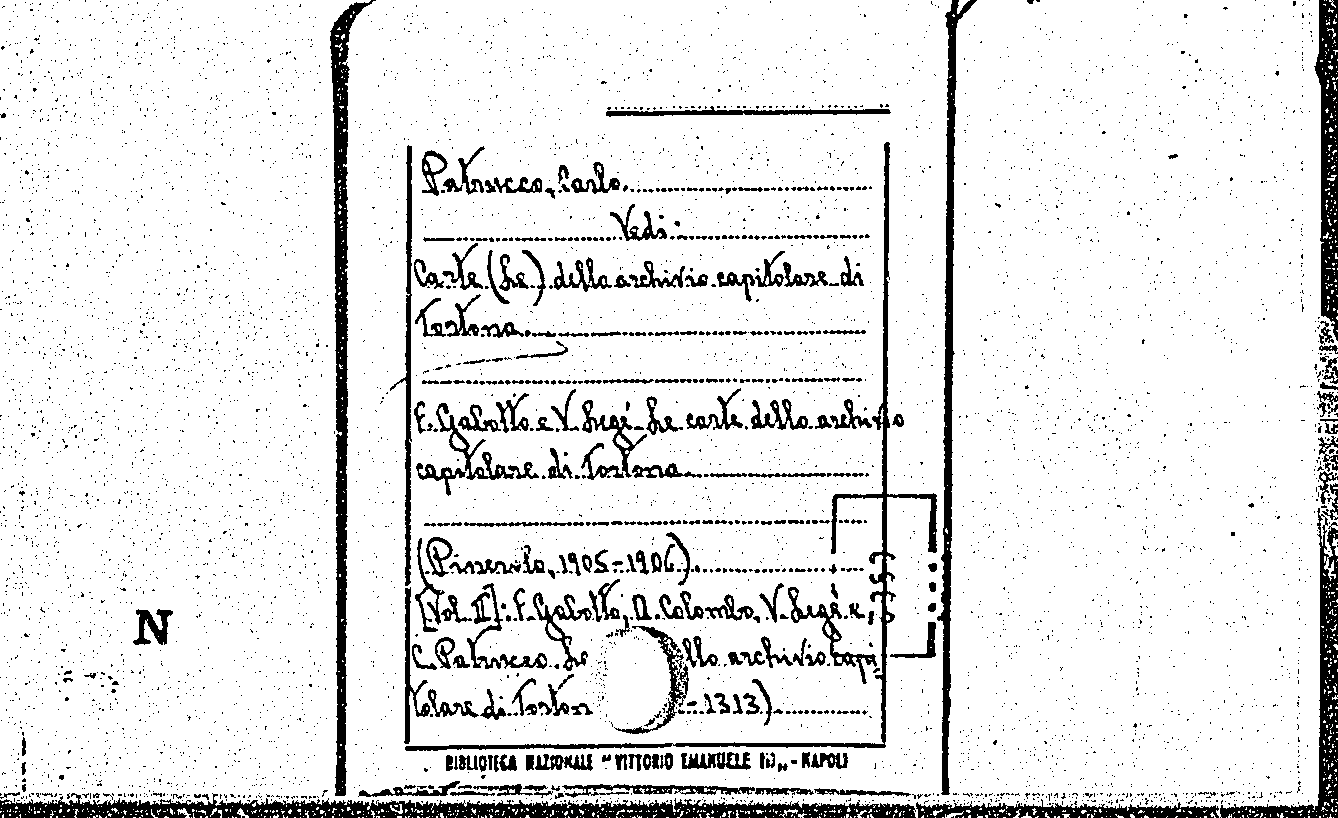 Patrucco, Carlo.
Vedi:
Carte (Le) dello archivio capitolare di
Tortona.
F. Gabotto e V. Legé - Le carte dello archivio
capitolare di Tortona.
(Pinerolo, 1905-1906).
[Vol. II]: F. Gabotto, A. Colombo, V. Legé e
C. Patrucco. Le llo archivio capi
tolare di Torton - 1313).
N
BIBLIOTECA NAZIONALE "VITTORIO EMANUELE III„ - NAPOLI